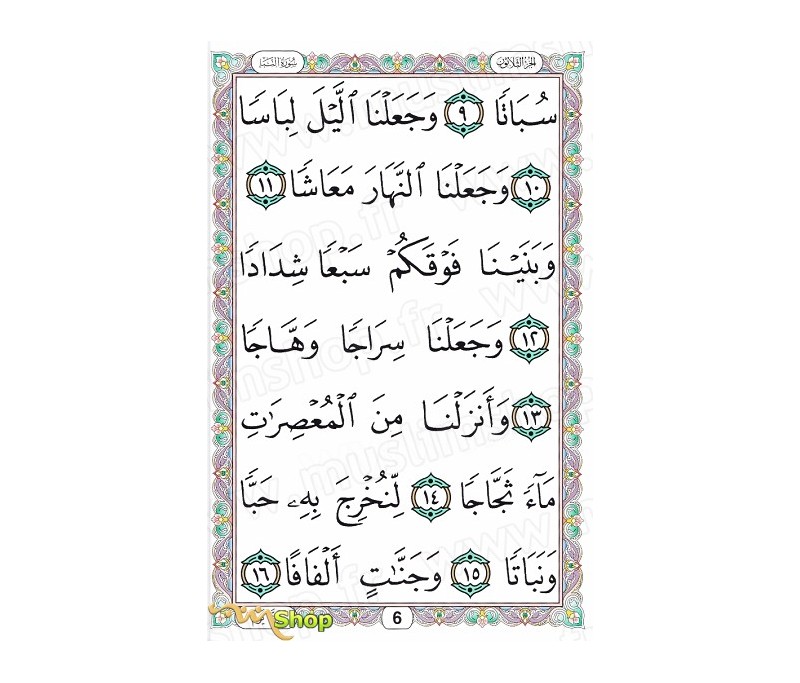 الجزء الثلاثون
سورة النبإ
سُبَاتًا ٩ وَجَعَلْنَا ٱلَّيْلَ لِبَاسًا
١٠ وَجَعَلْنَا ٱلنَّهَارَ مَعَاشًا ١١
وَبَنَيْنَا فَوْقَكُمْ سَبْعًا شِدَادًا
١٢ وَجَعَلْنَا سِرَاجًا وَهَّاجًا
١٣ وَأَنزَلْنَا مِنَ ٱلْمُعْصِرَٰتِ
مَآءً ثَجَّاجًا ١٤ لِّنُخْرِجَ بِهِۦ حَبًّا
وَنَبَاتًا ١٥ وَجَنَّٰتٍ أَلْفَافًا ١٦
Shop
6